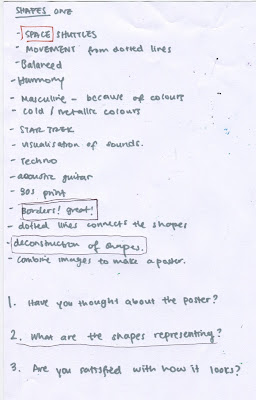 SHAPES ONE
- SPACE SHUTTLES
- MOVEMENT from dotted lines
- Balanced
- Harmony
- Masculine - because of colours
- Cold / metallic colours
- STAR TREK
- visualisation of sounds.
- Techno
- acoustic guitar
- 80s print
- Borders! great!
- dotted lines connects the shapes
- deconstruction of shapes.
- combine images to make a poster.
1. Have you thought about the poster?
2. What are the shapes representing?
3. Are you satisfied with how it looks?